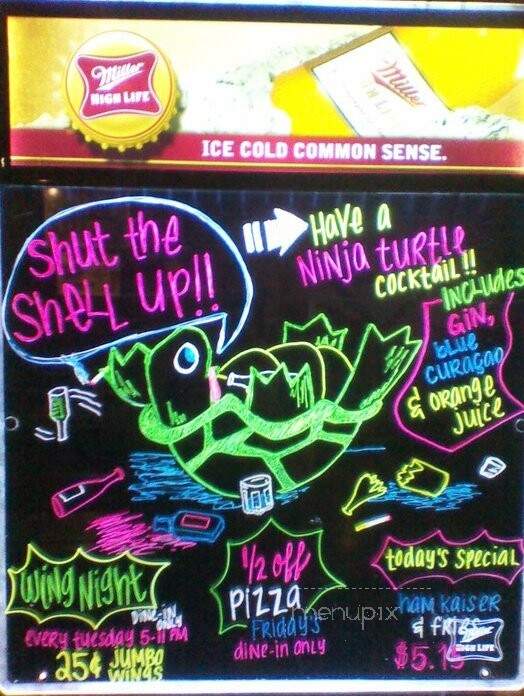 Miller
HIGH LIFE
Miller
ICE COLD COMMON SENSE.
Shut the
SHELL UP!!
HAVE A
NINJA TURTLE
COCKTAIL!!
INCLUDES
GIN,
blue
CURAÇAO
& ORANGE
JUICE
Wing Night
DINE-IN
ONLY
every tuesday 5-11 PM
25¢ JUMBO
WINGS
1/2 off
PIZZA
FRIDAYS
DINE-IN ONLY
today's special
ham kaiser
& fries
$5.
Miller
HIGH LIFE
menupix